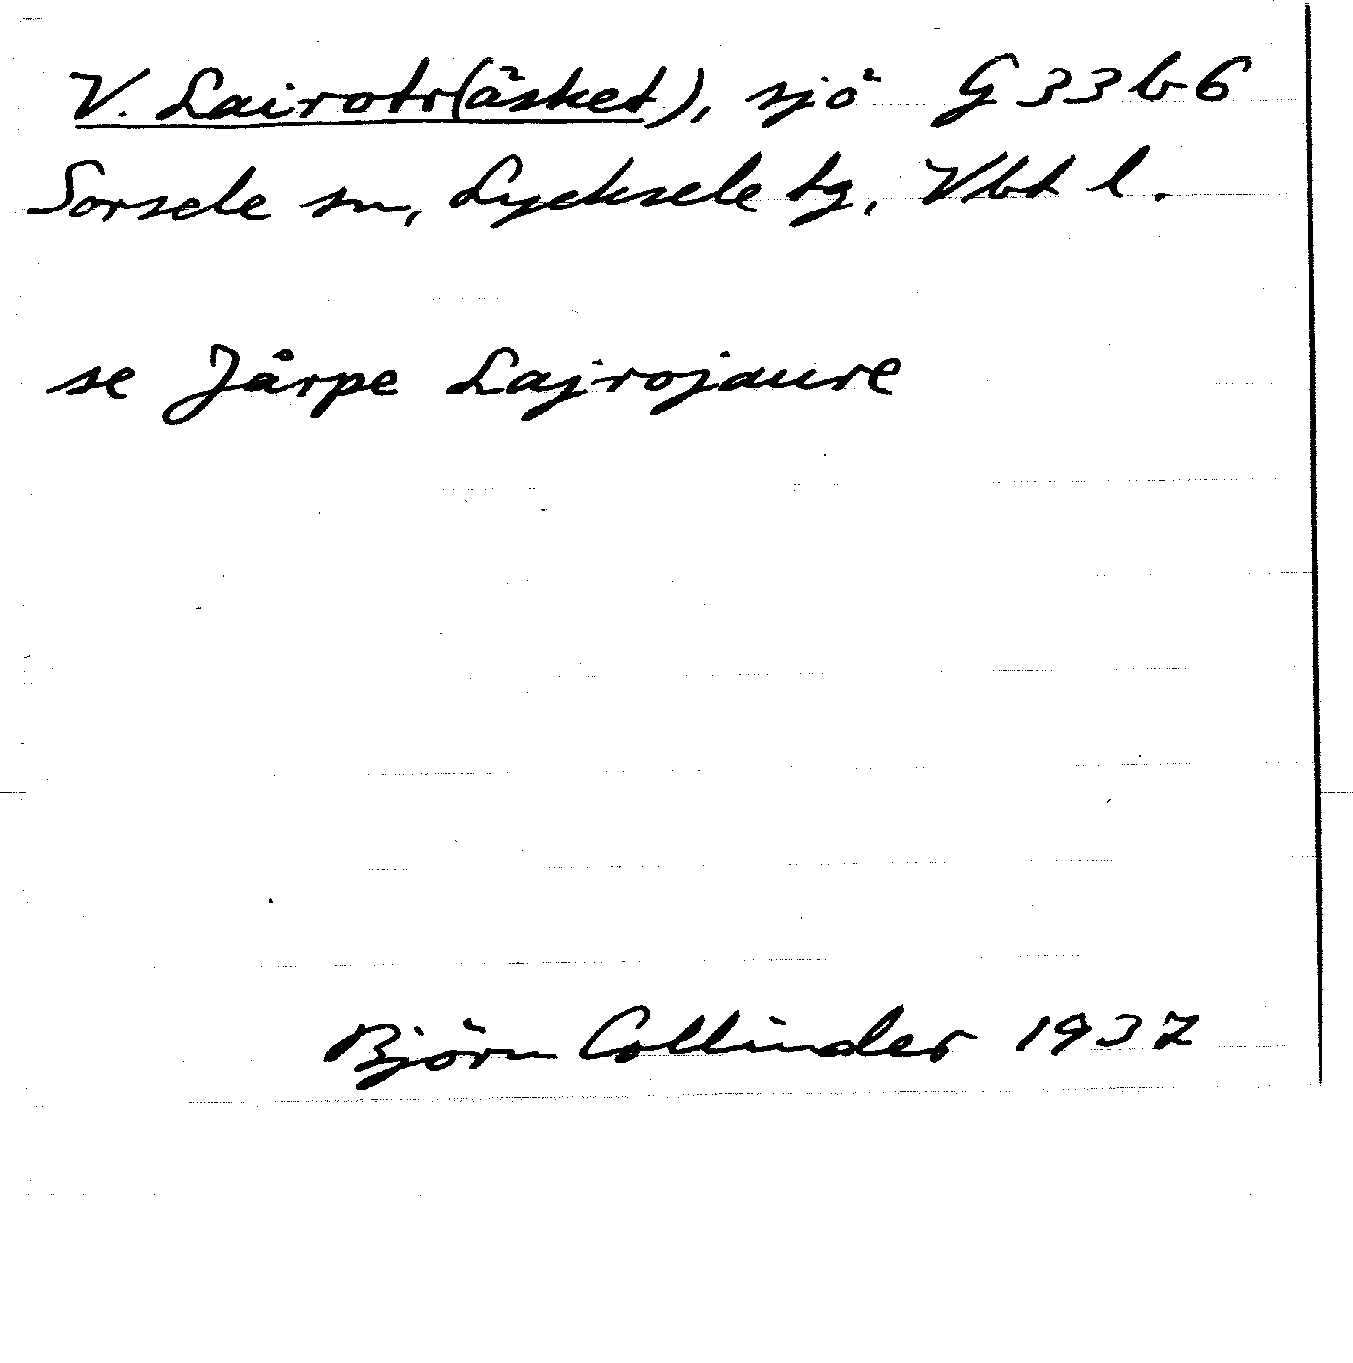 V. Lairotr(äsket), sjö G 33 b 6
Sorsele sn, Lycksele tg, Vbt l.
se Jårpe Lajrojaure
Björn Collinder 1937